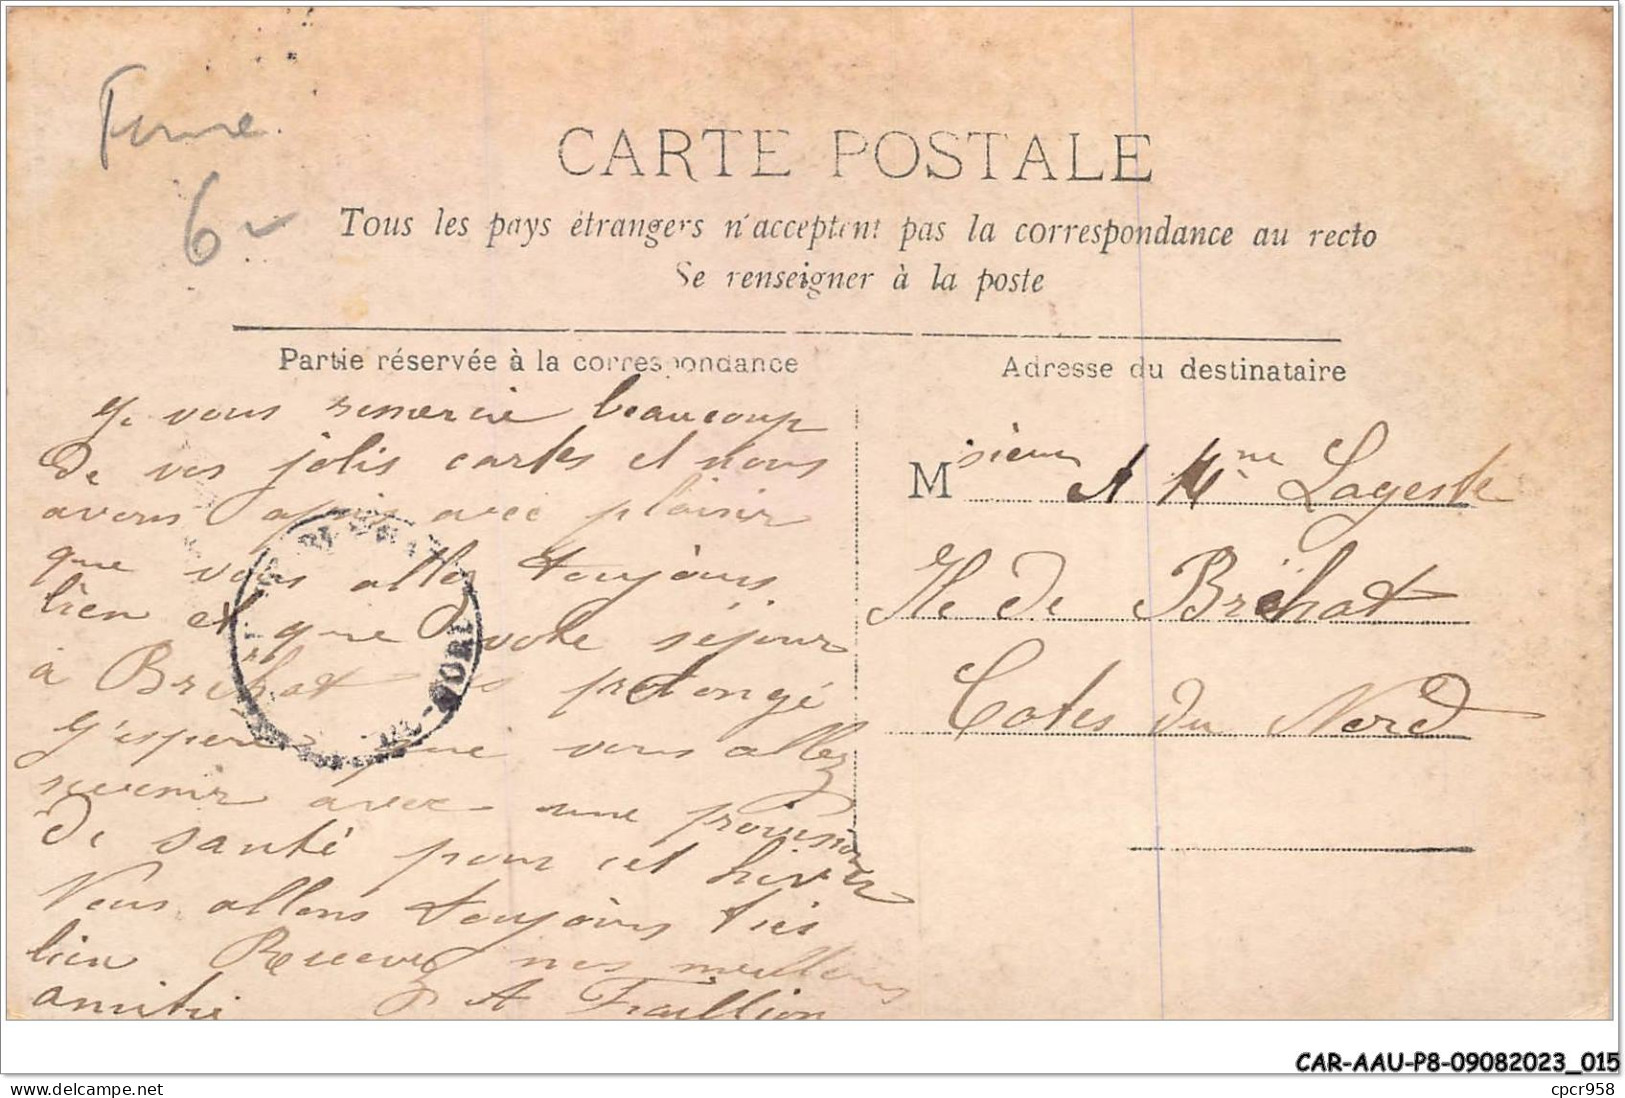 Ferme
6-
CARTE POSTALE
Tous les pays étrangers n'acceptent pas la correspondance au recto
Se renseigner à la poste
Partie réservée à la correspondance
Adresse du destinataire
Je vous remercie beaucoup
de vos jolis cartes et nous
avons apris avec plaisir
que vous allez toujours
bien et que votre séjour
à Bréhat prolongé
J'espere que vous allez
revenir avec une provision
de santé pour cet hiver
Nous allons toujours tres
bien Recevez nos meilleurs
amitié A Fraillion
Monsieur et Mme Lageste
Ile de Bréhat
Cotes du Nord
CAR-AAU-P8-09082023_015
www.delcampe.net
cpcr958